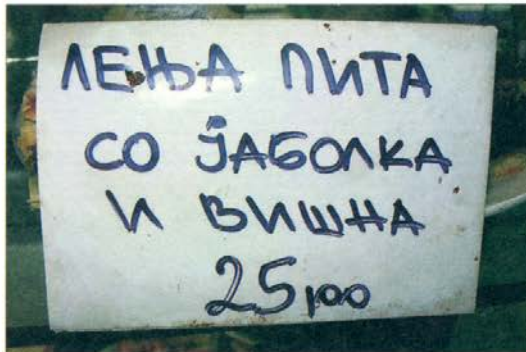 ЛЕЊА ПИТА
СО ЈАБОЛКА
И ВИШНА
25,00